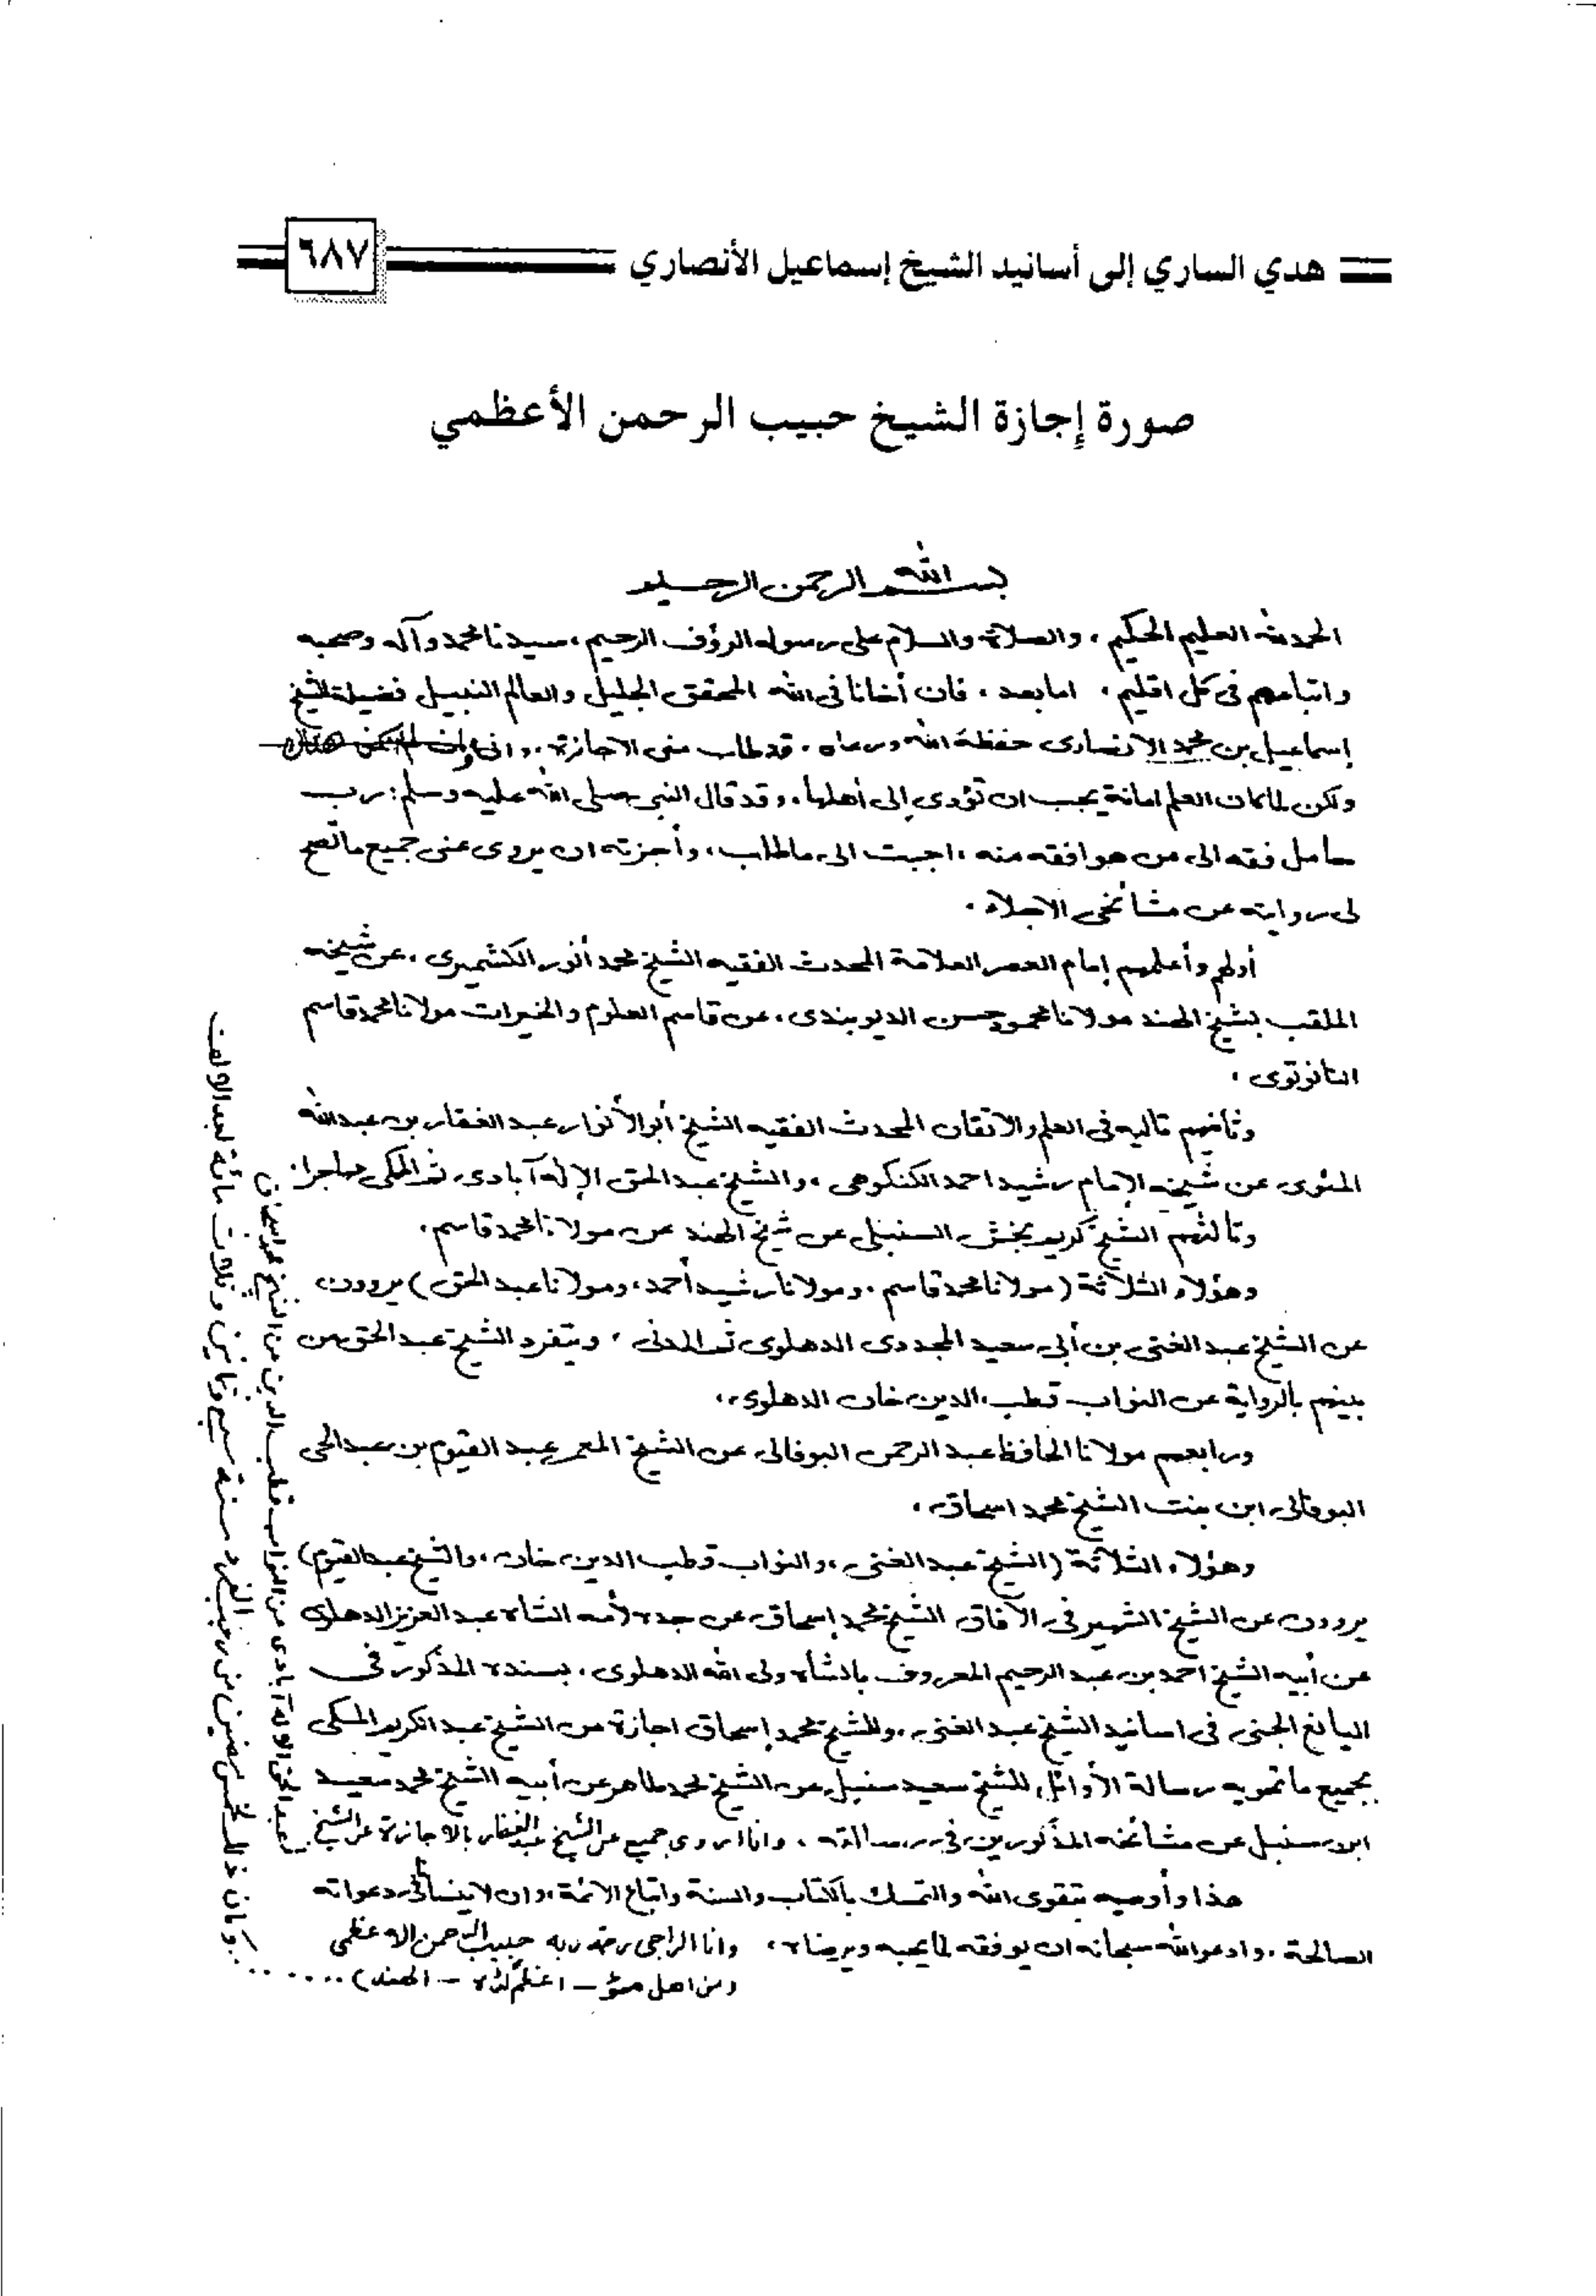 هدي الساري إلى أسانيد الشيخ إسماعيل الأنصاري
٦٨٧
صورة إجازة الشيخ حبيب الرحمن الأعظمي
بسم الله الرحمن الرحيم
الحمد لله العليم الحكيم، والصلاة والسلام على رسوله الرؤف الرحيم، سيدنا محمد وآله وصحبه
واتباعهم فى كل اقليم، اما بعد، فان أخانا فى الله المحقق الجليل والعالم النبيل فضيلة الشيخ
إسماعيل بن محمد الانصارى حفظه الله ورعاه، قد طلب منى الاجازة، وانى وان لم اكن هنالك
ولكن لما كان العلم امانة يجب ان تؤدى إلى أهلها، وقد قال النبى صلى الله عليه وسلم: رب
حامل فقه الى من هو افقه منه، اجبت الى ما طلب، وأجزته ان يروى عنى جميع ما تصح
لى روايته عن مشائخى الاجلاء.
أولهم وأعلمهم إمام العصر العلامة المحدث الفقيه الشيخ محمد أنور الكشميرى، عن شيخه
الملقب بشيخ الهند مولانا محمود حسن الديوبندى، عن قاسم العلوم والخيرات مولانا محمد قاسم
النانوتوى.
وثانيهم تاليه فى العلم والاتقان المحدث الفقيه الشيخ أبو الأنوار عبد الغفار بن عبد الله
المئوى عن شيخيه الإمام رشيد احمد الكنكوهى، والشيخ عبد الحق الإله آبادى ثم المكى مهاجرا.
وثالثهم الشيخ كريم بخش السنبلى عن شيخ الهند عن مولانا محمد قاسم.
وهؤلاء الثلاثة (مولانا محمد قاسم، ومولانا رشيد أحمد، ومولانا عبد الحق) يروون
عن الشيخ عبد الغنى بن أبى سعيد المجددى الدهلوى ثم المدنى، ويتفرد الشيخ عبد الحق من
بينهم بالرواية عن النواب قطب الدين خان الدهلوى،
ورابعهم مولانا الحافظ عبد الرحمن البوفالى عن الشيخ المعمر عبد القيوم بن عبد الحى
البوفالى ابن بنت الشيخ محمد اسحاق.
وهؤلاء الثلاثة (الشيخ عبد الغنى، والنواب قطب الدين خان، والشيخ عبد القيوم)
يروون عن الشيخ الشهير فى الآفاق الشيخ محمد إسحاق عن جده لأمه الشاه عبد العزيز الدهلوى
عن أبيه الشيخ احمد بن عبد الرحيم المعروف بالشاه ولى الله الدهلوى، بسنده المذكور فى
اليانع الجنى فى اسانيد الشيخ عبد الغنى، وللشيخ محمد إسحاق اجازة من الشيخ عبد الكريم المكى
بجميع ما تحويه رسالة الأوائل للشيخ سعيد سنبل عن الشيخ محمد طاهر عن أبيه الشيخ محمد سعيد
ابن سنبل عن مشائخه المذكورين فى رسالته، وانا اروى جميع عن الشيخ عبد الغفار بالاجازة عن الشيخ
عبد الحق الاله آبادى عن النواب قطب الدين عن الشيخ محمد اسحاق
هذا وأوصيه بتقوى الله والتمسك بالكتاب والسنة واتباع الائمة، وان لا ينسانى فى دعواته
الصالحة، وادعو الله سبحانه ان يوفقه لما يحبه ويرضاه، وانا الراجى رحمة ربه حبيب الرحمن الاعظمى
(من اهل مئو - اعظم گڈه - الهند) .....
وكان ذلك لخمس مضين من رجب الفرد سنة سبع وثمانين وثلاث مائة بعد الالف